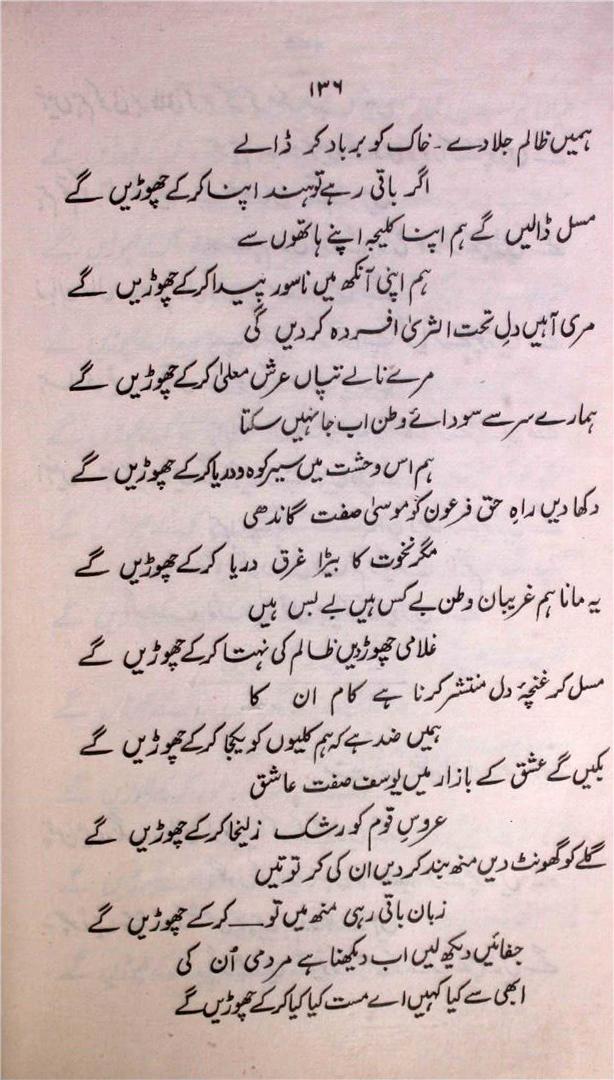 ۱۳۶
ہمیں ظالم جلا دے ۔ خاک کو برباد کر ڈالے
اگر باقی رہے تو ہند اپنا کر کے چھوڑیں گے
مسل ڈالیں گے ہم اپنا کلیجہ اپنے ہاتھوں سے
ہم اپنی آنکھ میں ناسور پیدا کر کے چھوڑیں گے
مری آہیں دلِ تحت الثریٰ افسردہ کر دیں گی
مرے نالے تپاں عرش معلیٰ کر کے چھوڑیں گے
ہمارے سر سے سودائے وطن اب جا نہیں سکتا
ہم اس وحشت میں سیر کوہ و دریا کر کے چھوڑیں گے
دکھا دیں راہِ حق فرعون کو موسیٰ صفت گاندھی
مگر نخوت کا بیڑا غرق دریا کر کے چھوڑیں گے
یہ مانا ہم غریبان وطن بے کس ہیں بے بس ہیں
غلامی چھوڑ دیں ظالم کی نہتا کر کے چھوڑیں گے
مسل کر غنچۂ دل منتشر کرنا ہے کام ان کا
ہمیں ضد ہے کہ ہم کلیوں کو یکجا کر کے چھوڑیں گے
بکیں گے عشق کے بازار میں یوسف صفت عاشق
عروسِ قوم کو رشک زلیخا کر کے چھوڑیں گے
گلے کو گھونٹ دیں منھ بند کر دیں ان کی کرتوتیں
زبان باقی رہی منھ میں تو ــــــ کر کے چھوڑیں گے
جفائیں دیکھ لیں اب دیکھنا ہے مردمی اُن کی
ابھی سے کیا کہیں اے مست کیا کیا کر کے چھوڑیں گے